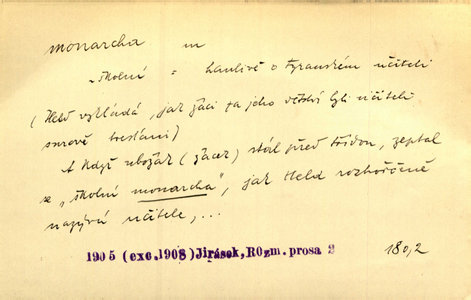 monarcha m
„školní = hanlivě o tyranském učiteli
(Held vykládá, jak žáci za jeho dětství byli učiteli
surově trestáni)
A když ubožák (žáček) stál před třídou, zeptal
se „školní monarcha", jak Held rozhořčeně
nazývá učitele,...
1905 (exc.1908) Jirásek, Rozm. prosa 2
180,2